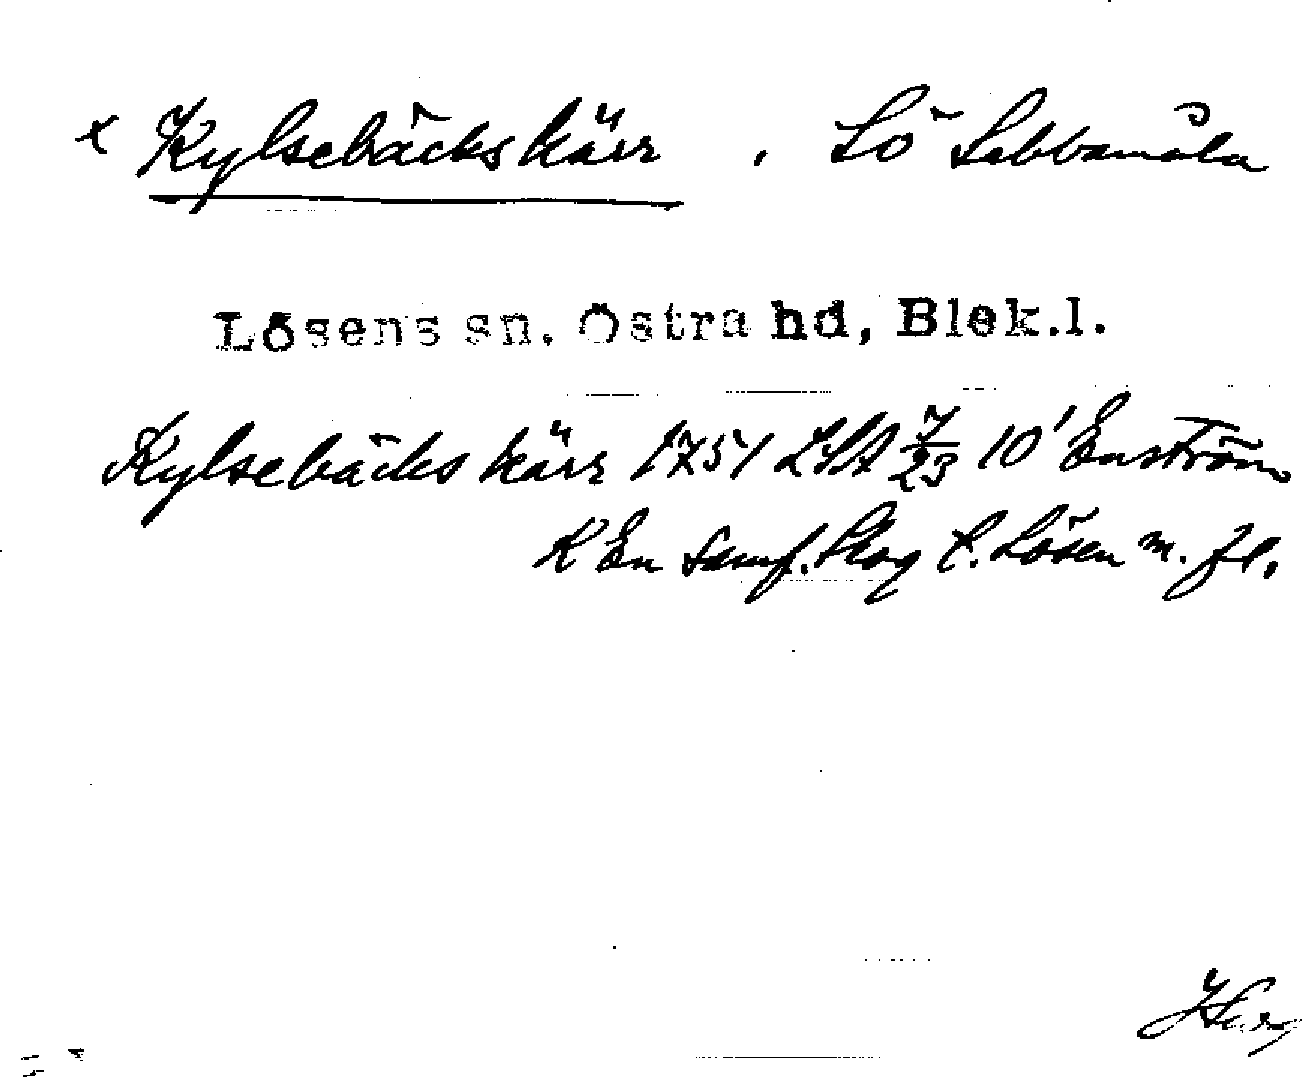 x Kylsebäckskärr , Lö Lebbamåla
Lösens sn. Östra hd, Blek.l.
Kylsebäckskärr 1751 LSA 7/23 10' Enström
K En samf. skog t. Lösen m. fl.